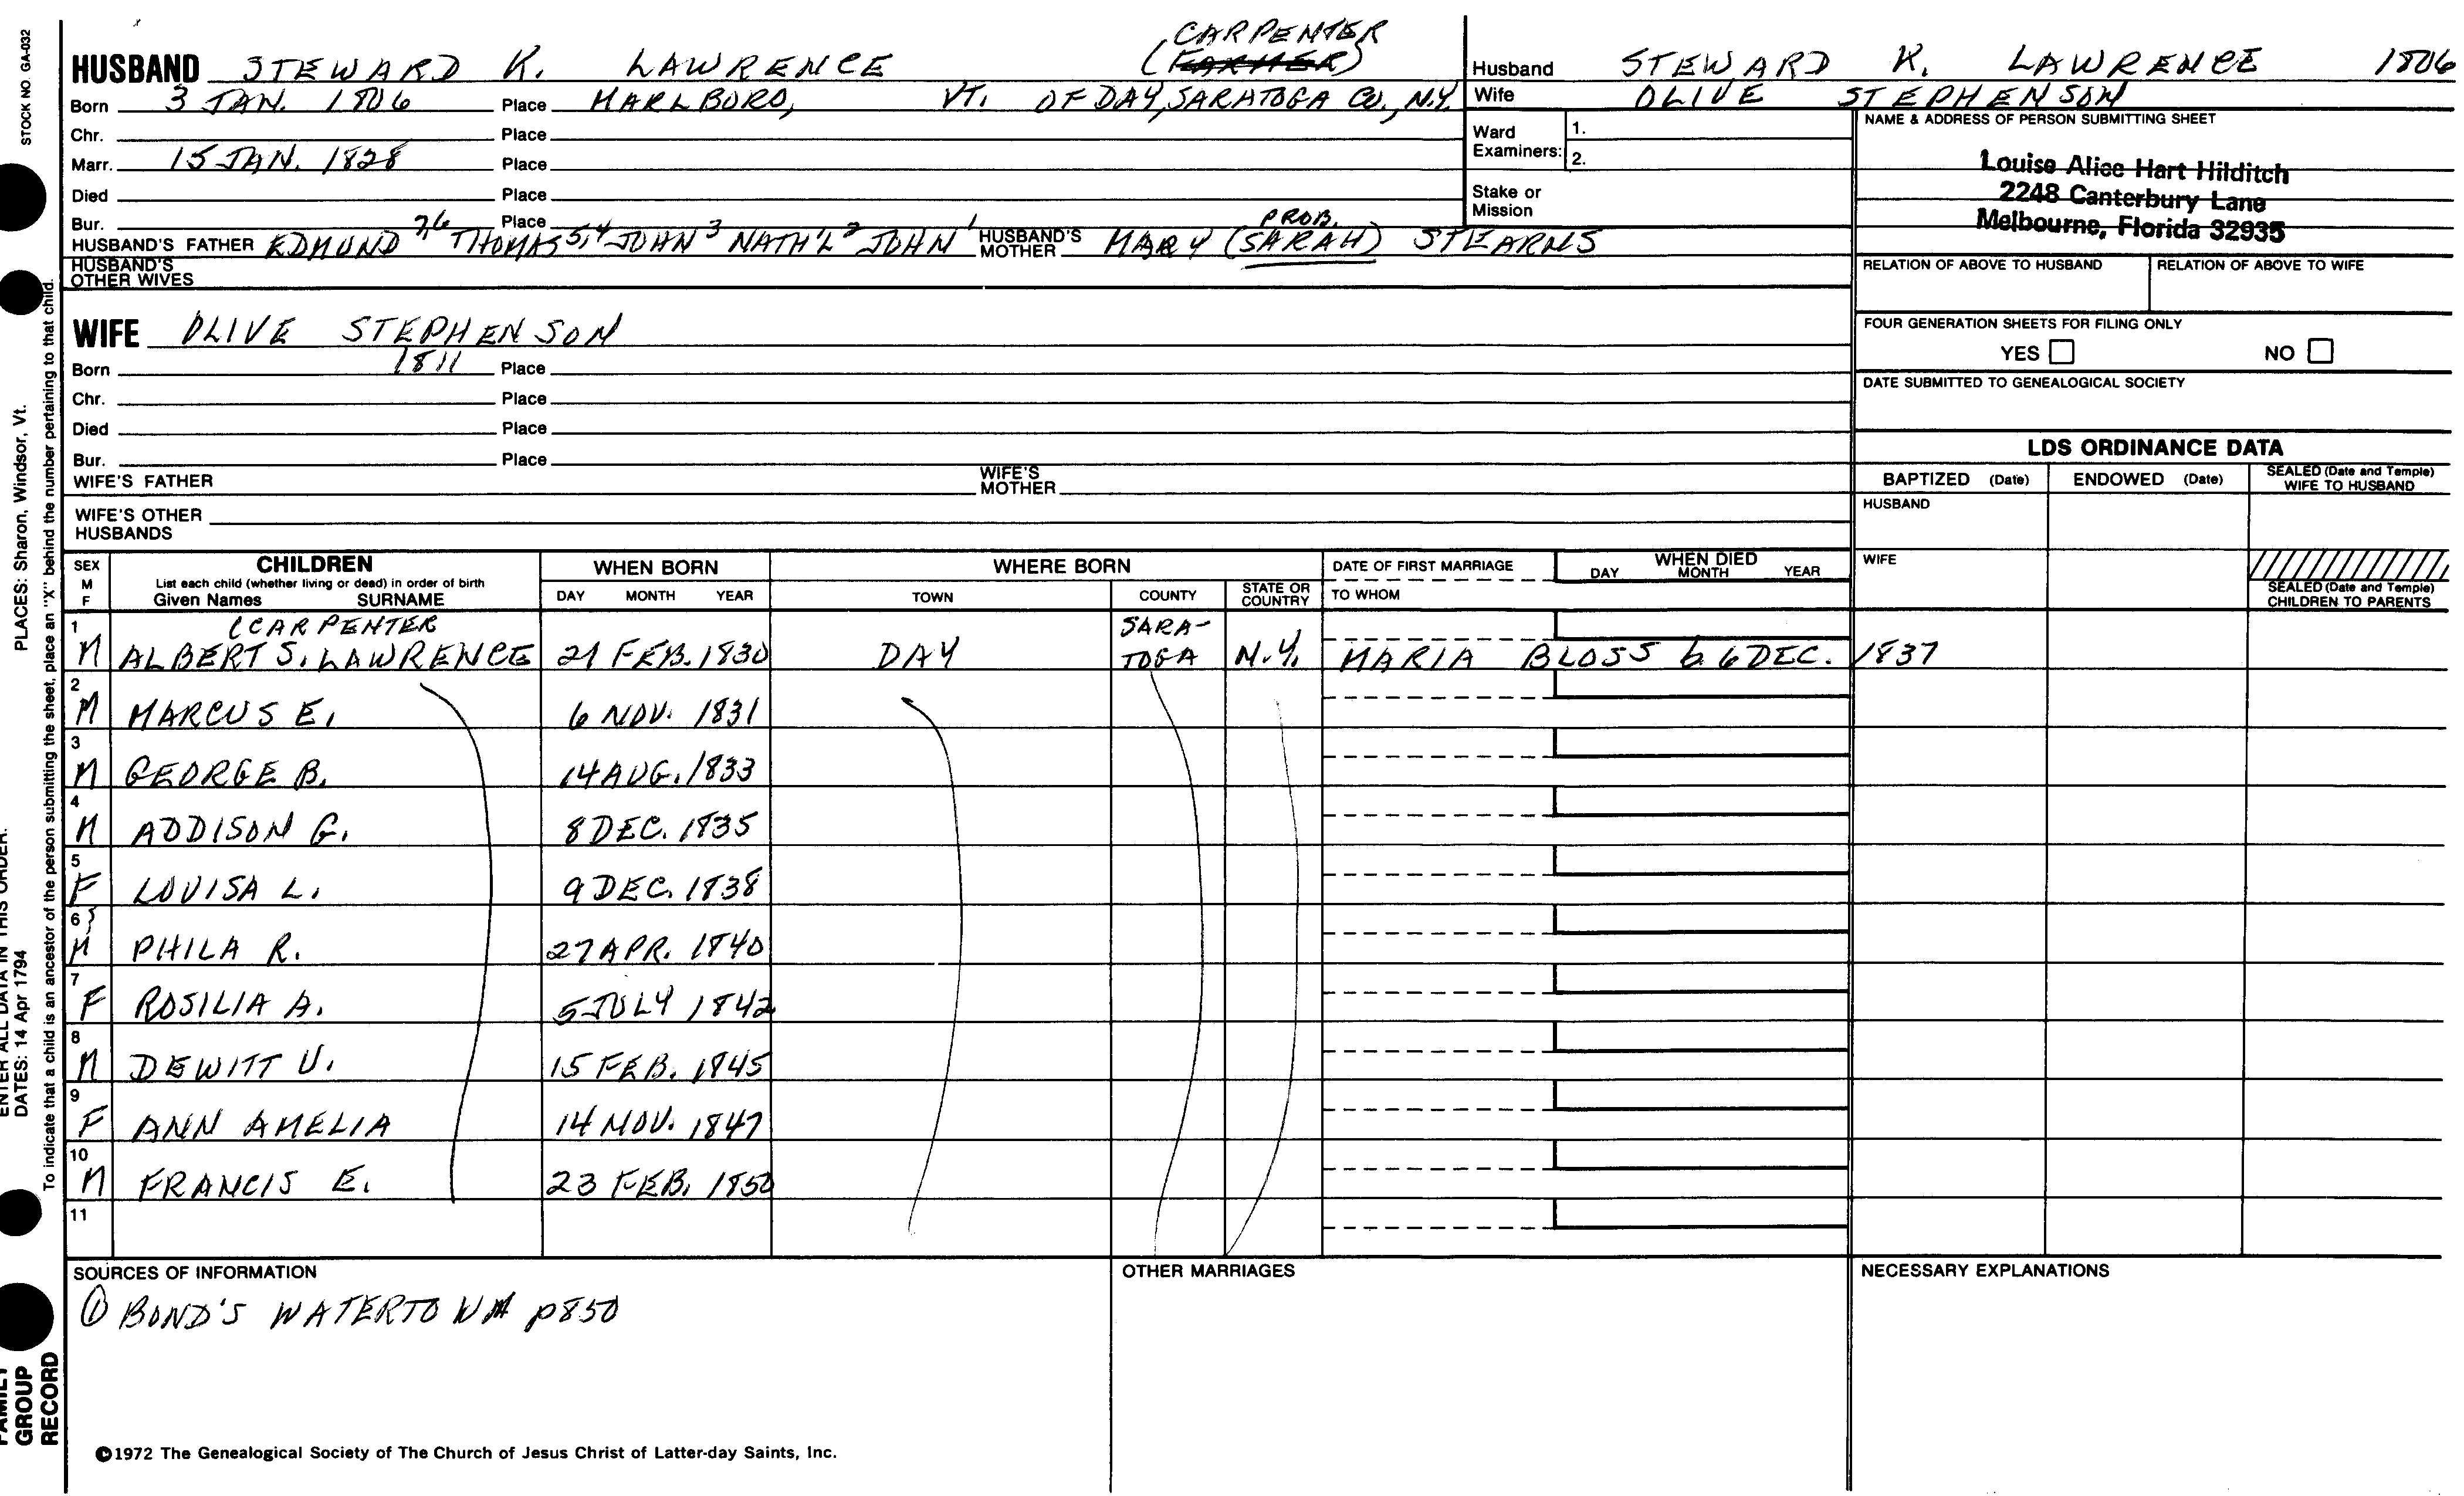 STOCK NO. GA-032
PLACES: Sharon, Windsor, Vt.
ENTER ALL DATA IN THIS ORDER:
DATES: 14 Apr 1794
To indicate that a child is an ancestor of the person submitting the sheet, place an "X" behind the number pertaining to that child.
FAMILY GROUP RECORD
CARPENTER
HUSBAND STEWARD K. LAWRENCE (FARMER)
Born 3 JAN. 1806 Place MARLBORO, VT. OF DAY, SARATOGA CO., N.Y.
Chr. Place
Marr. 15 JAN. 1828 Place
Died Place
Bur. Place
HUSBAND'S FATHER EDMUND 7,6 THOMAS 5,4 JOHN 3 NATH'L 2 JOHN 1 HUSBAND'S MOTHER MARY (PROB. SARAH) STEARNS
HUSBAND'S OTHER WIVES
Husband STEWARD K. LAWRENCE 1806
Wife OLIVE STEPHENSON
Ward Examiners: 1.
2.
Stake or Mission
NAME & ADDRESS OF PERSON SUBMITTING SHEET
Louise Alice Hart Hilditch
2248 Canterbury Lane
Melbourne, Florida 32935
RELATION OF ABOVE TO HUSBAND RELATION OF ABOVE TO WIFE
FOUR GENERATION SHEETS FOR FILING ONLY
YES NO
DATE SUBMITTED TO GENEALOGICAL SOCIETY
WIFE OLIVE STEPHENSON
Born 1811 Place
Chr. Place
Died Place
Bur. Place
WIFE'S FATHER WIFE'S MOTHER
WIFE'S OTHER HUSBANDS
LDS ORDINANCE DATA
BAPTIZED (Date) ENDOWED (Date) SEALED (Date and Temple) WIFE TO HUSBAND
HUSBAND
WIFE
SEALED (Date and Temple) CHILDREN TO PARENTS
SEX M F CHILDREN WHEN BORN WHERE BORN DATE OF FIRST MARRIAGE WHEN DIED
List each child (whether living or dead) in order of birth
Given Names SURNAME DAY MONTH YEAR TOWN COUNTY STATE OR COUNTRY TO WHOM DAY MONTH YEAR
(CARPENTER
1 M ALBERT S. LAWRENCE 21 FEB. 1830 DAY SARATOGA N.Y. MARIA BLOSS b. 6 DEC. 1837
2 M MARCUS E. 6 NOV. 1831
3 M GEORGE B. 14 AUG. 1833
4 M ADDISON G. 8 DEC. 1835
5 F LOUISA L. 9 DEC. 1838
6 M PHILA R. 27 APR. 1840
7 F ROSILIA A. 5 JULY 1842
8 M DEWITT U. 15 FEB. 1845
9 F ANN AMELIA 14 NOV. 1847
10 M FRANCIS E. 23 FEB. 1850
11
SOURCES OF INFORMATION OTHER MARRIAGES NECESSARY EXPLANATIONS
① BOND'S WATERTOWN p850
©1972 The Genealogical Society of The Church of Jesus Christ of Latter-day Saints, Inc.